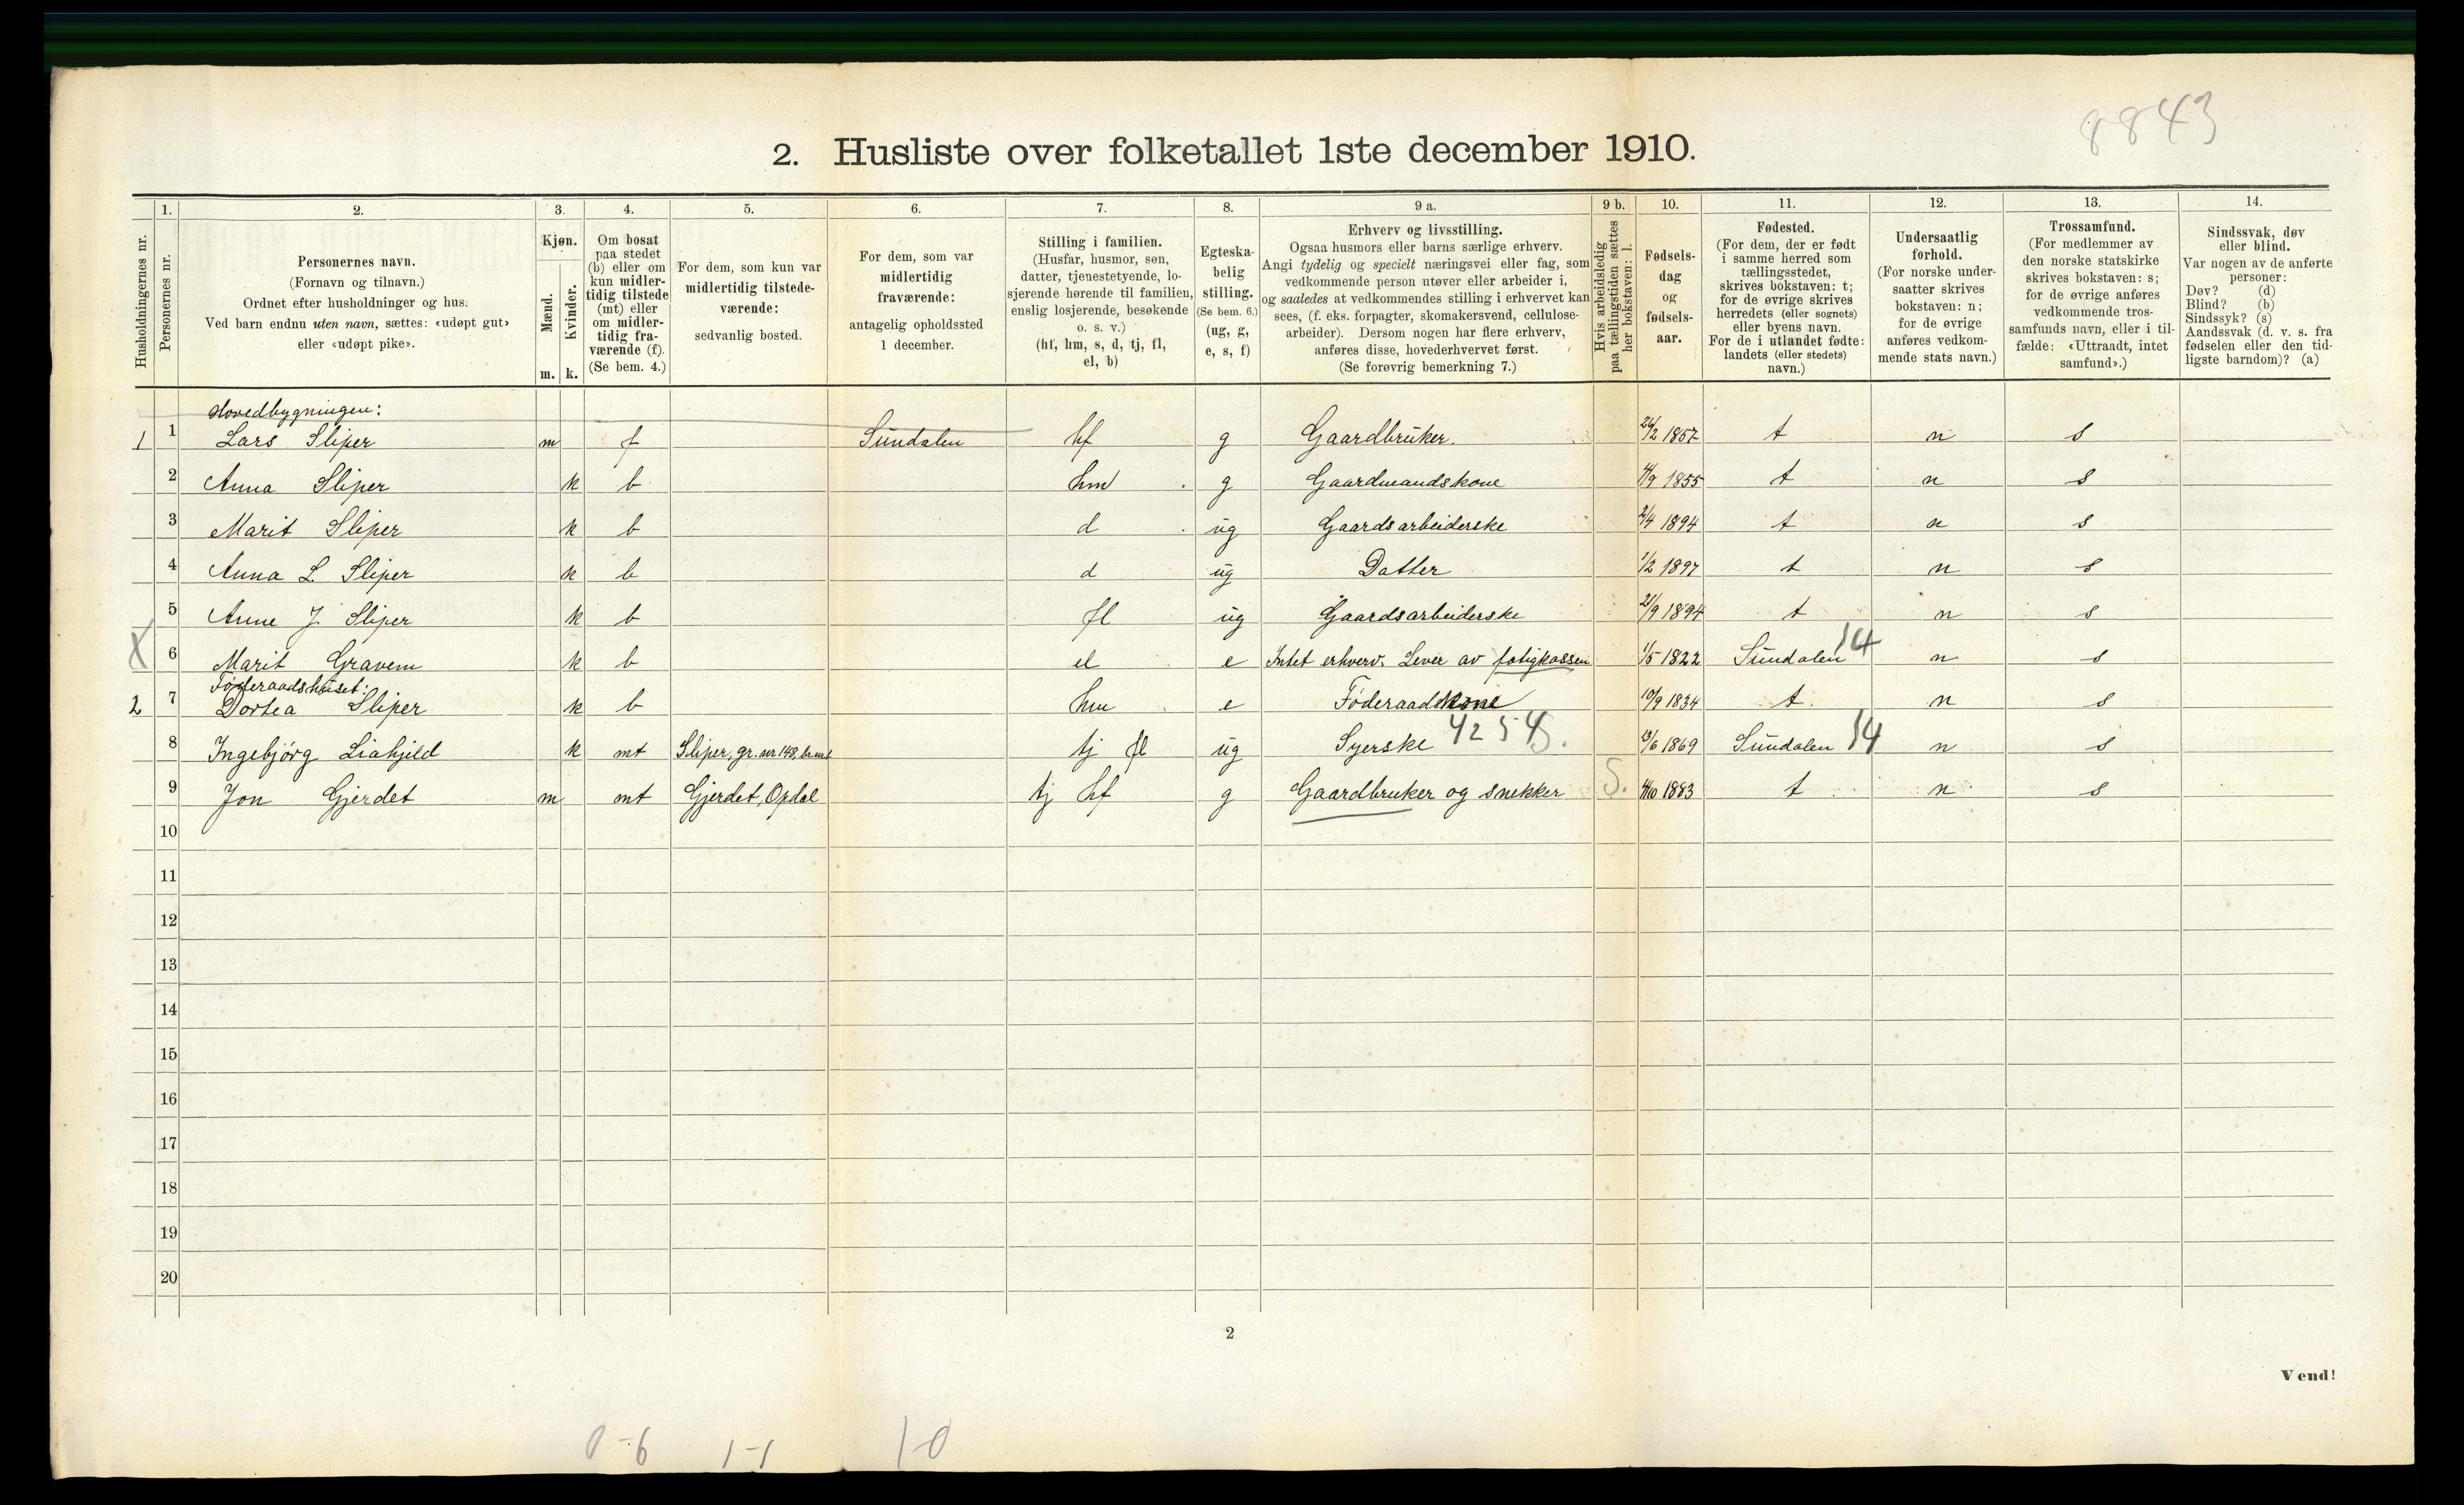 8843
2. Husliste over folketallet 1ste december 1910.
Husholdningernes nr.
1.
Personernes nr.
2.
Personernes navn.
(Fornavn og tilnavn.)
Ordnet efter husholdninger og hus.
Ved barn endnu uten navn, sættes: «udøpt gut»
eller «udøpt pike».
3.
Kjøn.
Mænd.
Kvinder.
m. k.
4.
Om bosat
paa stedet
(b) eller om
kun midler-
tidig tilstede
(mt) eller
om midler-
tidig fra-
værende (f).
(Se bem. 4.)
5.
For dem, som kun var
midlertidig tilstede-
værende:
sedvanlig bosted.
6.
For dem, som var
midlertidig
fraværende:
antagelig opholdssted
1 december.
7.
Stilling i familien.
(Husfar, husmor, søn,
datter, tjenestetyende, lo-
sjerende hørende til familien,
enslig losjerende, besøkende
o. s. v.)
(hf, hm, s, d, tj, fl,
el, b)
8.
Egteska-
belig
stilling.
(Se bem. 6.)
(ug, g,
e, s, f)
9 a.
Erhverv og livsstilling.
Ogsaa husmors eller barns særlige erhverv.
Angi tydelig og specielt næringsvei eller fag, som
vedkommende person utøver eller arbeider i,
og saaledes at vedkommendes stilling i erhvervet kan
sees, (f. eks. forpagter, skomakersvend, cellulose-
arbeider). Dersom nogen har flere erhverv,
anføres disse, hovederhvervet først.
(Se forøvrig bemerkning 7.)
9 b.
Hvis arbeidsledig
paa tællingstiden sættes
her bokstaven: l.
10.
Fødsels-
dag
og
fødsels-
aar.
11.
Fødested.
(For dem, der er født
i samme herred som
tællingsstedet,
skrives bokstaven: t;
for de øvrige skrives
herredets (eller sognets)
eller byens navn.
For de i utlandet fødte:
landets (eller stedets)
navn.)
12.
Undersaatlig
forhold.
(For norske under-
saatter skrives
bokstaven: n;
for de øvrige
anføres vedkom-
mende stats navn.)
13.
Trossamfund.
(For medlemmer av
den norske statskirke
skrives bokstaven: s;
for de øvrige anføres
vedkommende tros-
samfunds navn, eller i til-
fælde: «Uttraadt, intet
samfund».)
14.
Sindssvak, døv
eller blind.
Var nogen av de anførte
personer:
Døv? (d)
Blind? (b)
Sindssyk? (s)
Aandssvak (d. v. s. fra
fødselen eller den tid-
ligste barndom)? (a)
Hovedbygningen:
1 1 Lars Sliper m f Sundalen hf g Gaardbruker. 26/2 1857 t n s
2 Anna Sliper k b hm g Gaardmandskone 4/9 1855 t n s
3 Marit Sliper k b d ug Gaardsarbeiderske 2/4 1894 t n s
4 Anna L. Sliper k b d ug Datter 1/2 1897 t n s
5 Anne J. Sliper k b fl ug Gaardsarbeiderske 21/9 1894 t n s
X 6 Marit Gravem k b el e Intet erhverv. Lever av fatigkassen 1/5 1822 Sundalen 14 n s
Føderaadshuset:
2 7 Dortea Sliper k b hm e Føderaadskone 10/9 1834 t n s
8 Ingebjørg Liahjeld k mt Sliper, gr. nr 148, br. nr 1 tj fl ug Syerske 4254 S. 13/6 1869 Sundalen 14 n s
9 Jon Gjerdet m mt Gjerdet, Opdal tj hf g Gaardbruker og snekker S. 4/10 1883 t n s
10
11
12
13
14
15
16
17
18
19
20
2
Vend!
0-6 1-1 1-0